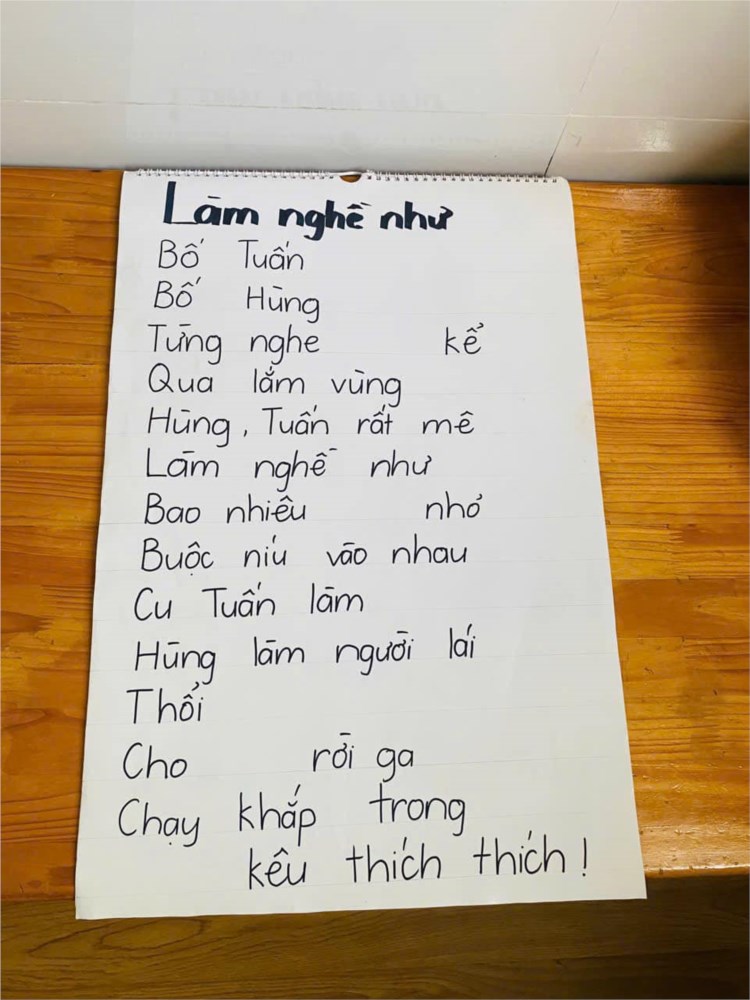 Làm nghề như
Bố Tuấn
Bố Hùng
Từng nghe kể
Qua lắm vùng
Hùng, Tuấn rất mê
Làm nghề như
Bao nhiêu nhỏ
Buộc níu vào nhau
Cu Tuấn làm
Hùng làm người lái
Thổi
Cho rời ga
Chạy khắp trong
kêu thích thích!